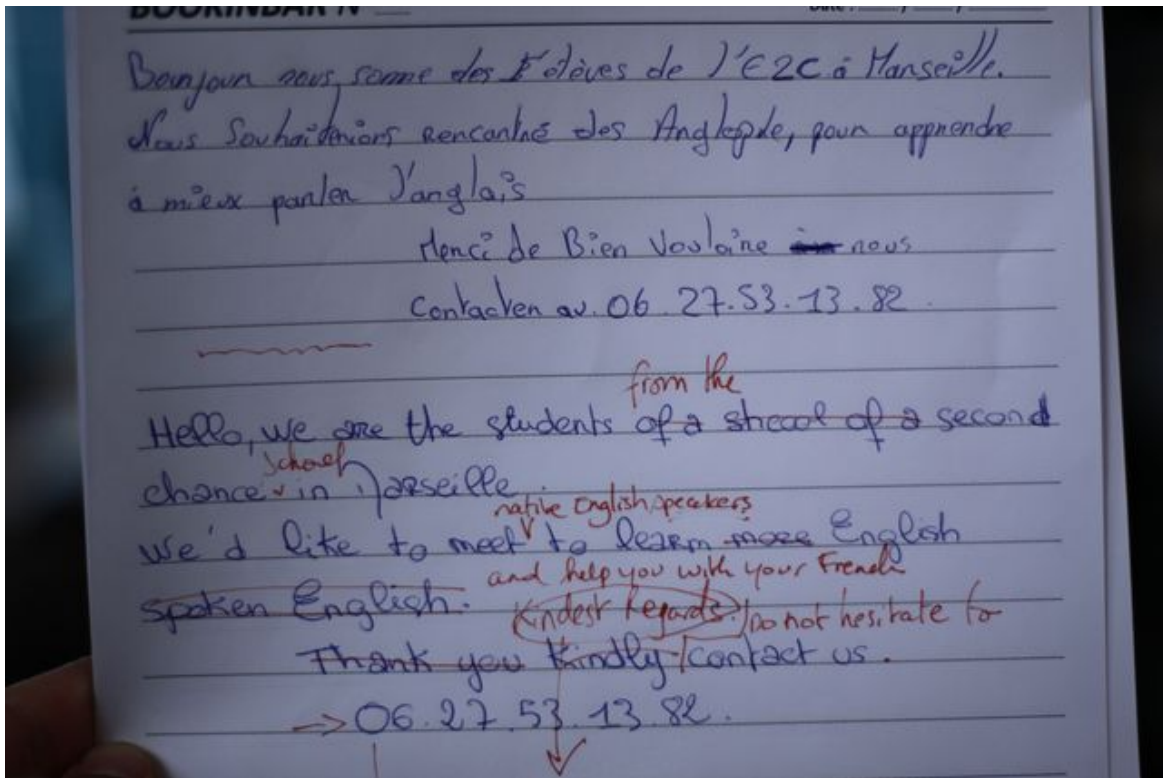 BOOKINBAR N°
Date : / /
Bonjour nous somme des élèves de l'E2C à Marseille.
Nous Souhaiterions rencontré des Anglopde, pour apprendre
à mieux parler l'anglais
Merci de Bien Vouloire nous
Contacter au. 06.27.53.13.82.
from the
Hello, we are the students of a shcool of a second
school
chance in Marseille.
native English speakers
We'd like to meet to learn more English
and help you with your French
spoken English. Kindest Regards. Do not hesitate to
Thank you Kindly contact us.
→ 06.27.53.13.82.